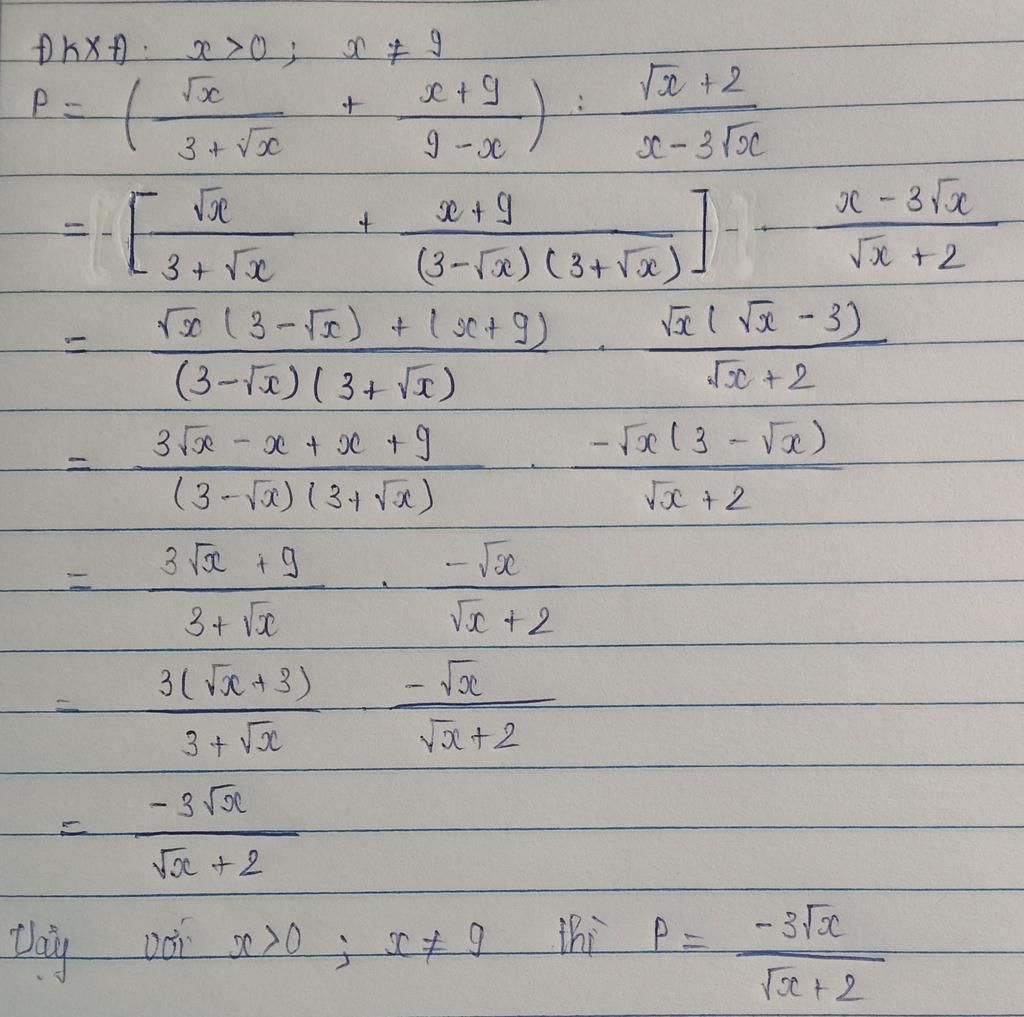 ĐKXĐ: x > 0 ; x ≠ 9
P = ( √x / (3 + √x) + (x + 9) / (9 - x) ) : (√x + 2) / (x - 3√x)
= [ √x / (3 + √x) + (x + 9) / ((3 - √x)(3 + √x)) ] . (x - 3√x) / (√x + 2)
= (√x(3 - √x) + (x + 9)) / ((3 - √x)(3 + √x)) . √x(√x - 3) / (√x + 2)
= (3√x - x + x + 9) / ((3 - √x)(3 + √x)) . -√x(3 - √x) / (√x + 2)
= (3√x + 9) / (3 + √x) . -√x / (√x + 2)
= 3(√x + 3) / (3 + √x) . -√x / (√x + 2)
= -3√x / (√x + 2)
Vậy với x > 0 ; x ≠ 9 thì P = -3√x / (√x + 2)